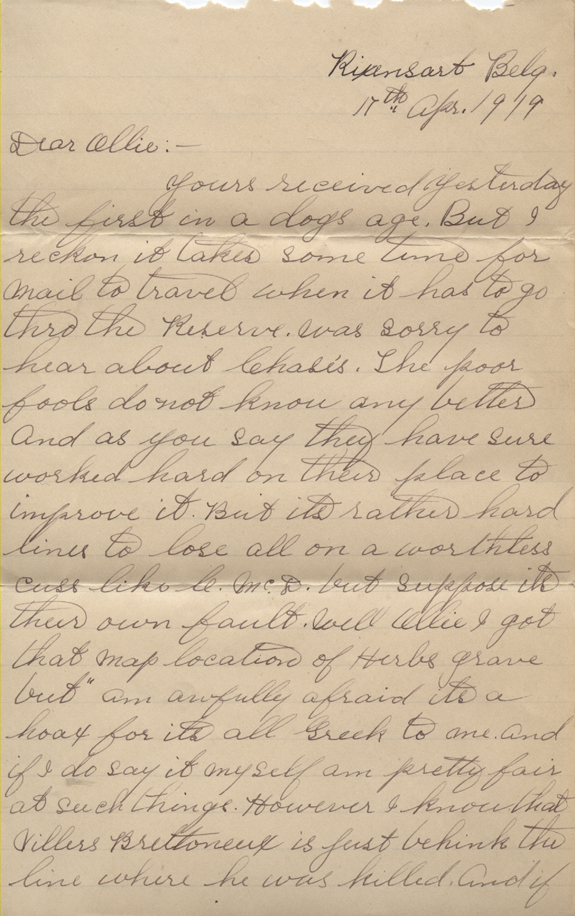 Rixensart Belg.
17th Apr. 1919
Dear Ollie:-
Yours received yesterday
the first in a dogs age. But I
reckon it takes some time for
mail to travel when it has to go
thro the Reserve. was sorry to
hear about Chasis. The poor
fools do not know any better
And as you say they have sure
worked hard on their place to
improve it. But its rather hard
lines to lose all on a worthless
cuss like C. McD. but suppose its
their own fault. Well Ollie I got
that map location of Herbs grave
but" am awfully afraid its a
hoax for its all Greek to me. And
if I do say it myself am pretty fair
at such things. However I know that
Villers Brettoneux is just behink the
line where he was killed. And if